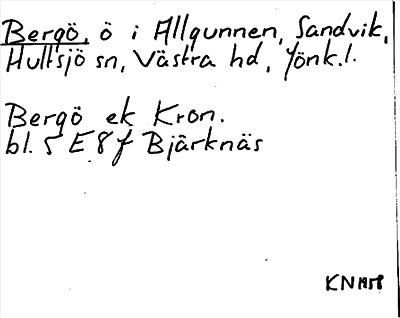 Bergö, ö i Allgunnen, Sandvik,
Hultsjö sn, Västra hd, Jönk.l.
Bergö ek Kron.
bl. 5 E 8 f Bjärknäs
KN 1958